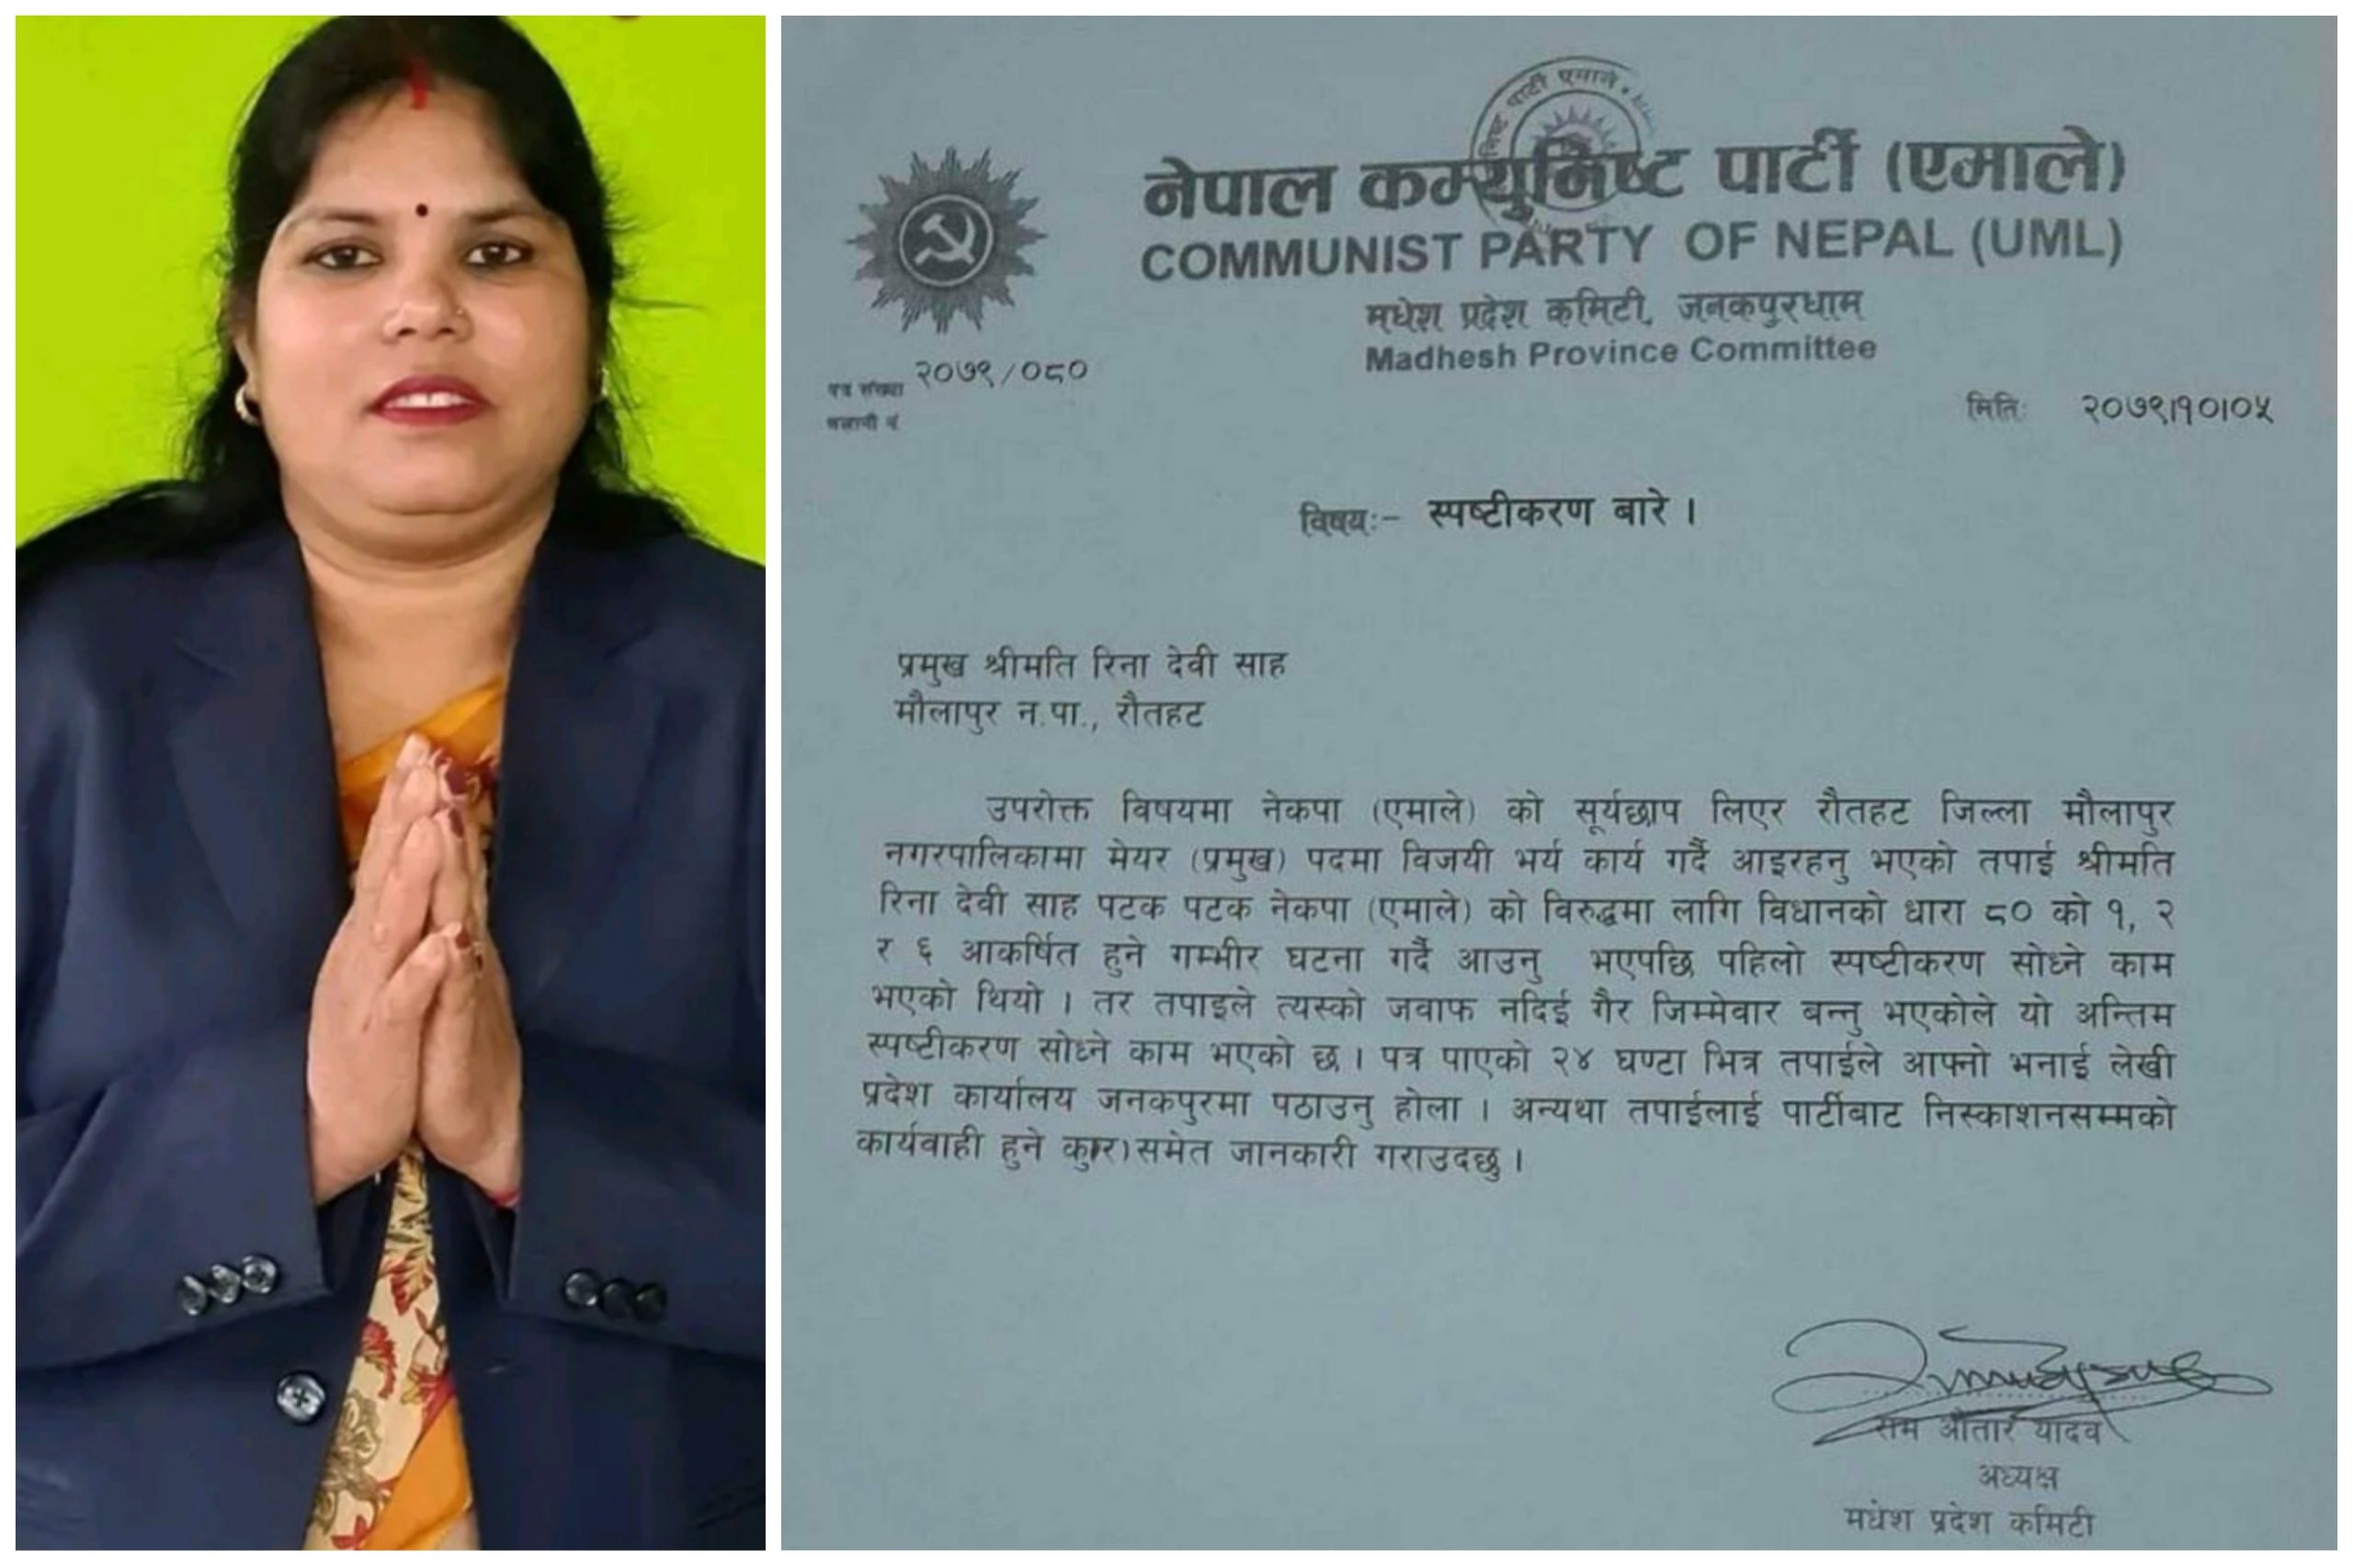 पार्टी एमाले
नेपाल कम्युनिष्ट पार्टी (एमाले)
COMMUNIST PARTY OF NEPAL (UML)
मधेश प्रदेश कमिटी, जनकपुरधाम
Madhesh Province Committee
पत्र संख्या २०७९/०८०
चलानी नं
मितिः २०७९।१०।०५
विषयः- स्पष्टीकरण बारे ।
प्रमुख श्रीमति रिना देवी साह
मौलापुर न.पा., रौतहट
उपरोक्त विषयमा नेकपा (एमाले) को सूर्यछाप लिएर रौतहट जिल्ला मौलापुर
नगरपालिकामा मेयर (प्रमुख) पदमा विजयी भर्य कार्य गर्दै आइरहनु भएको तपाई श्रीमति
रिना देवी साह पटक पटक नेकपा (एमाले) को विरुद्धमा लागि विधानको धारा ८० को १, २
र ६ आकर्षित हुने गम्भीर घटना गर्दै आउनु भएपछि पहिलो स्पष्टीकरण सोध्ने काम
भएको थियो । तर तपाइले त्यस्को जवाफ नदिई गैर जिम्मेवार बन्नु भएकोले यो अन्तिम
स्पष्टीकरण सोध्ने काम भएको छ । पत्र पाएको २४ घण्टा भित्र तपाईले आफ्नो भनाई लेखी
प्रदेश कार्यालय जनकपुरमा पठाउनु होला । अन्यथा तपाईलाई पार्टीबाट निस्काशनसम्मको
कार्यवाही हुने कु(रा)समेत जानकारी गराउदछु ।
राम औतार यादव
अध्यक्ष
मधेश प्रदेश कमिटी